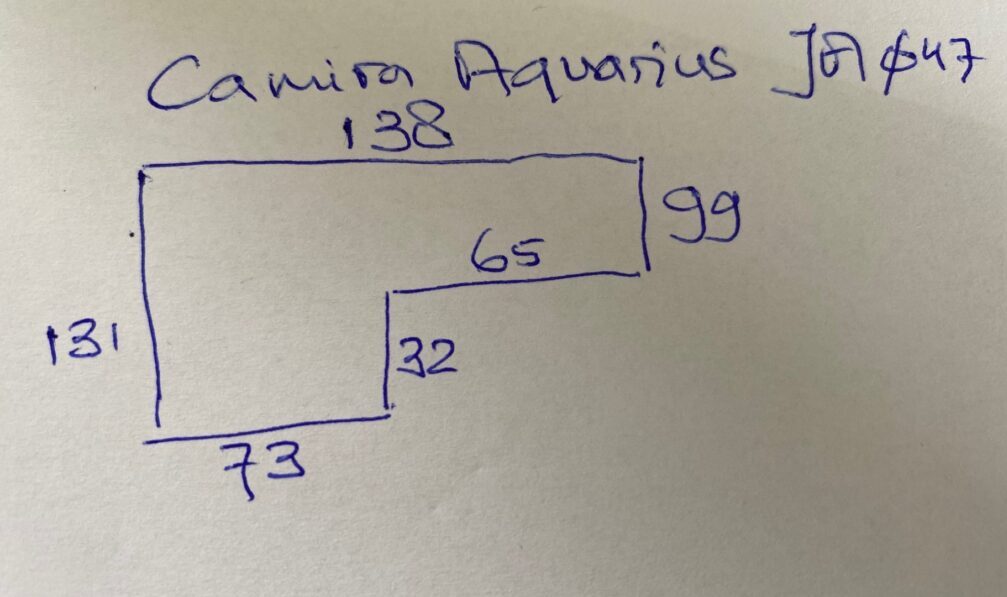 Camira Aquarius JA $47
138
99
65
131
32
73